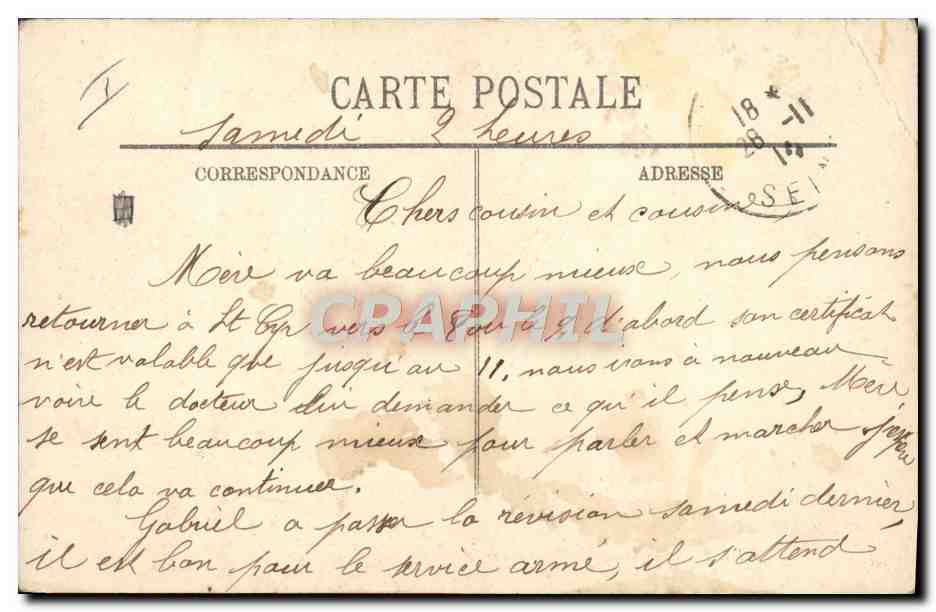 I
CARTE POSTALE
18 * 28 -11
SEI
Samedi 2 heures
CORRESPONDANCE ADRESSE
Chers cousin et cousine
Mère va beaucoup mieux, nous pensons
retourner à St Cyr vers le 8 ou le 9 d'abord son certificat
n'est valable que jusqu'au 11. nous irons à nouveau
voire le docteur lui demander ce qu'il pense, Mère
se sent beaucoup mieux pour parler et marcher j'espère
que cela va continuer.
Gabriel a passer la révision samedi dernier,
il est bon pour le service armé, il s'attend
CPARHIL